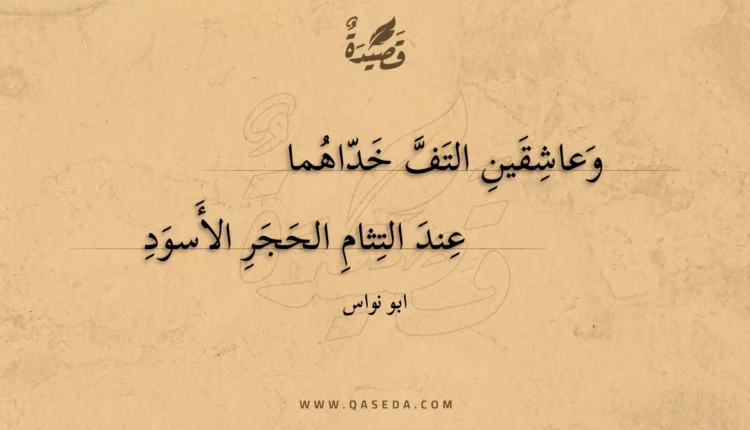 قَصِيدَةٌ
وَعاشِقَينِ التَفَّ خَدّاهُما
عِندَ التِثامِ الحَجَرِ الأَسوَدِ
ابو نواس
WWW.QASEDA.COM